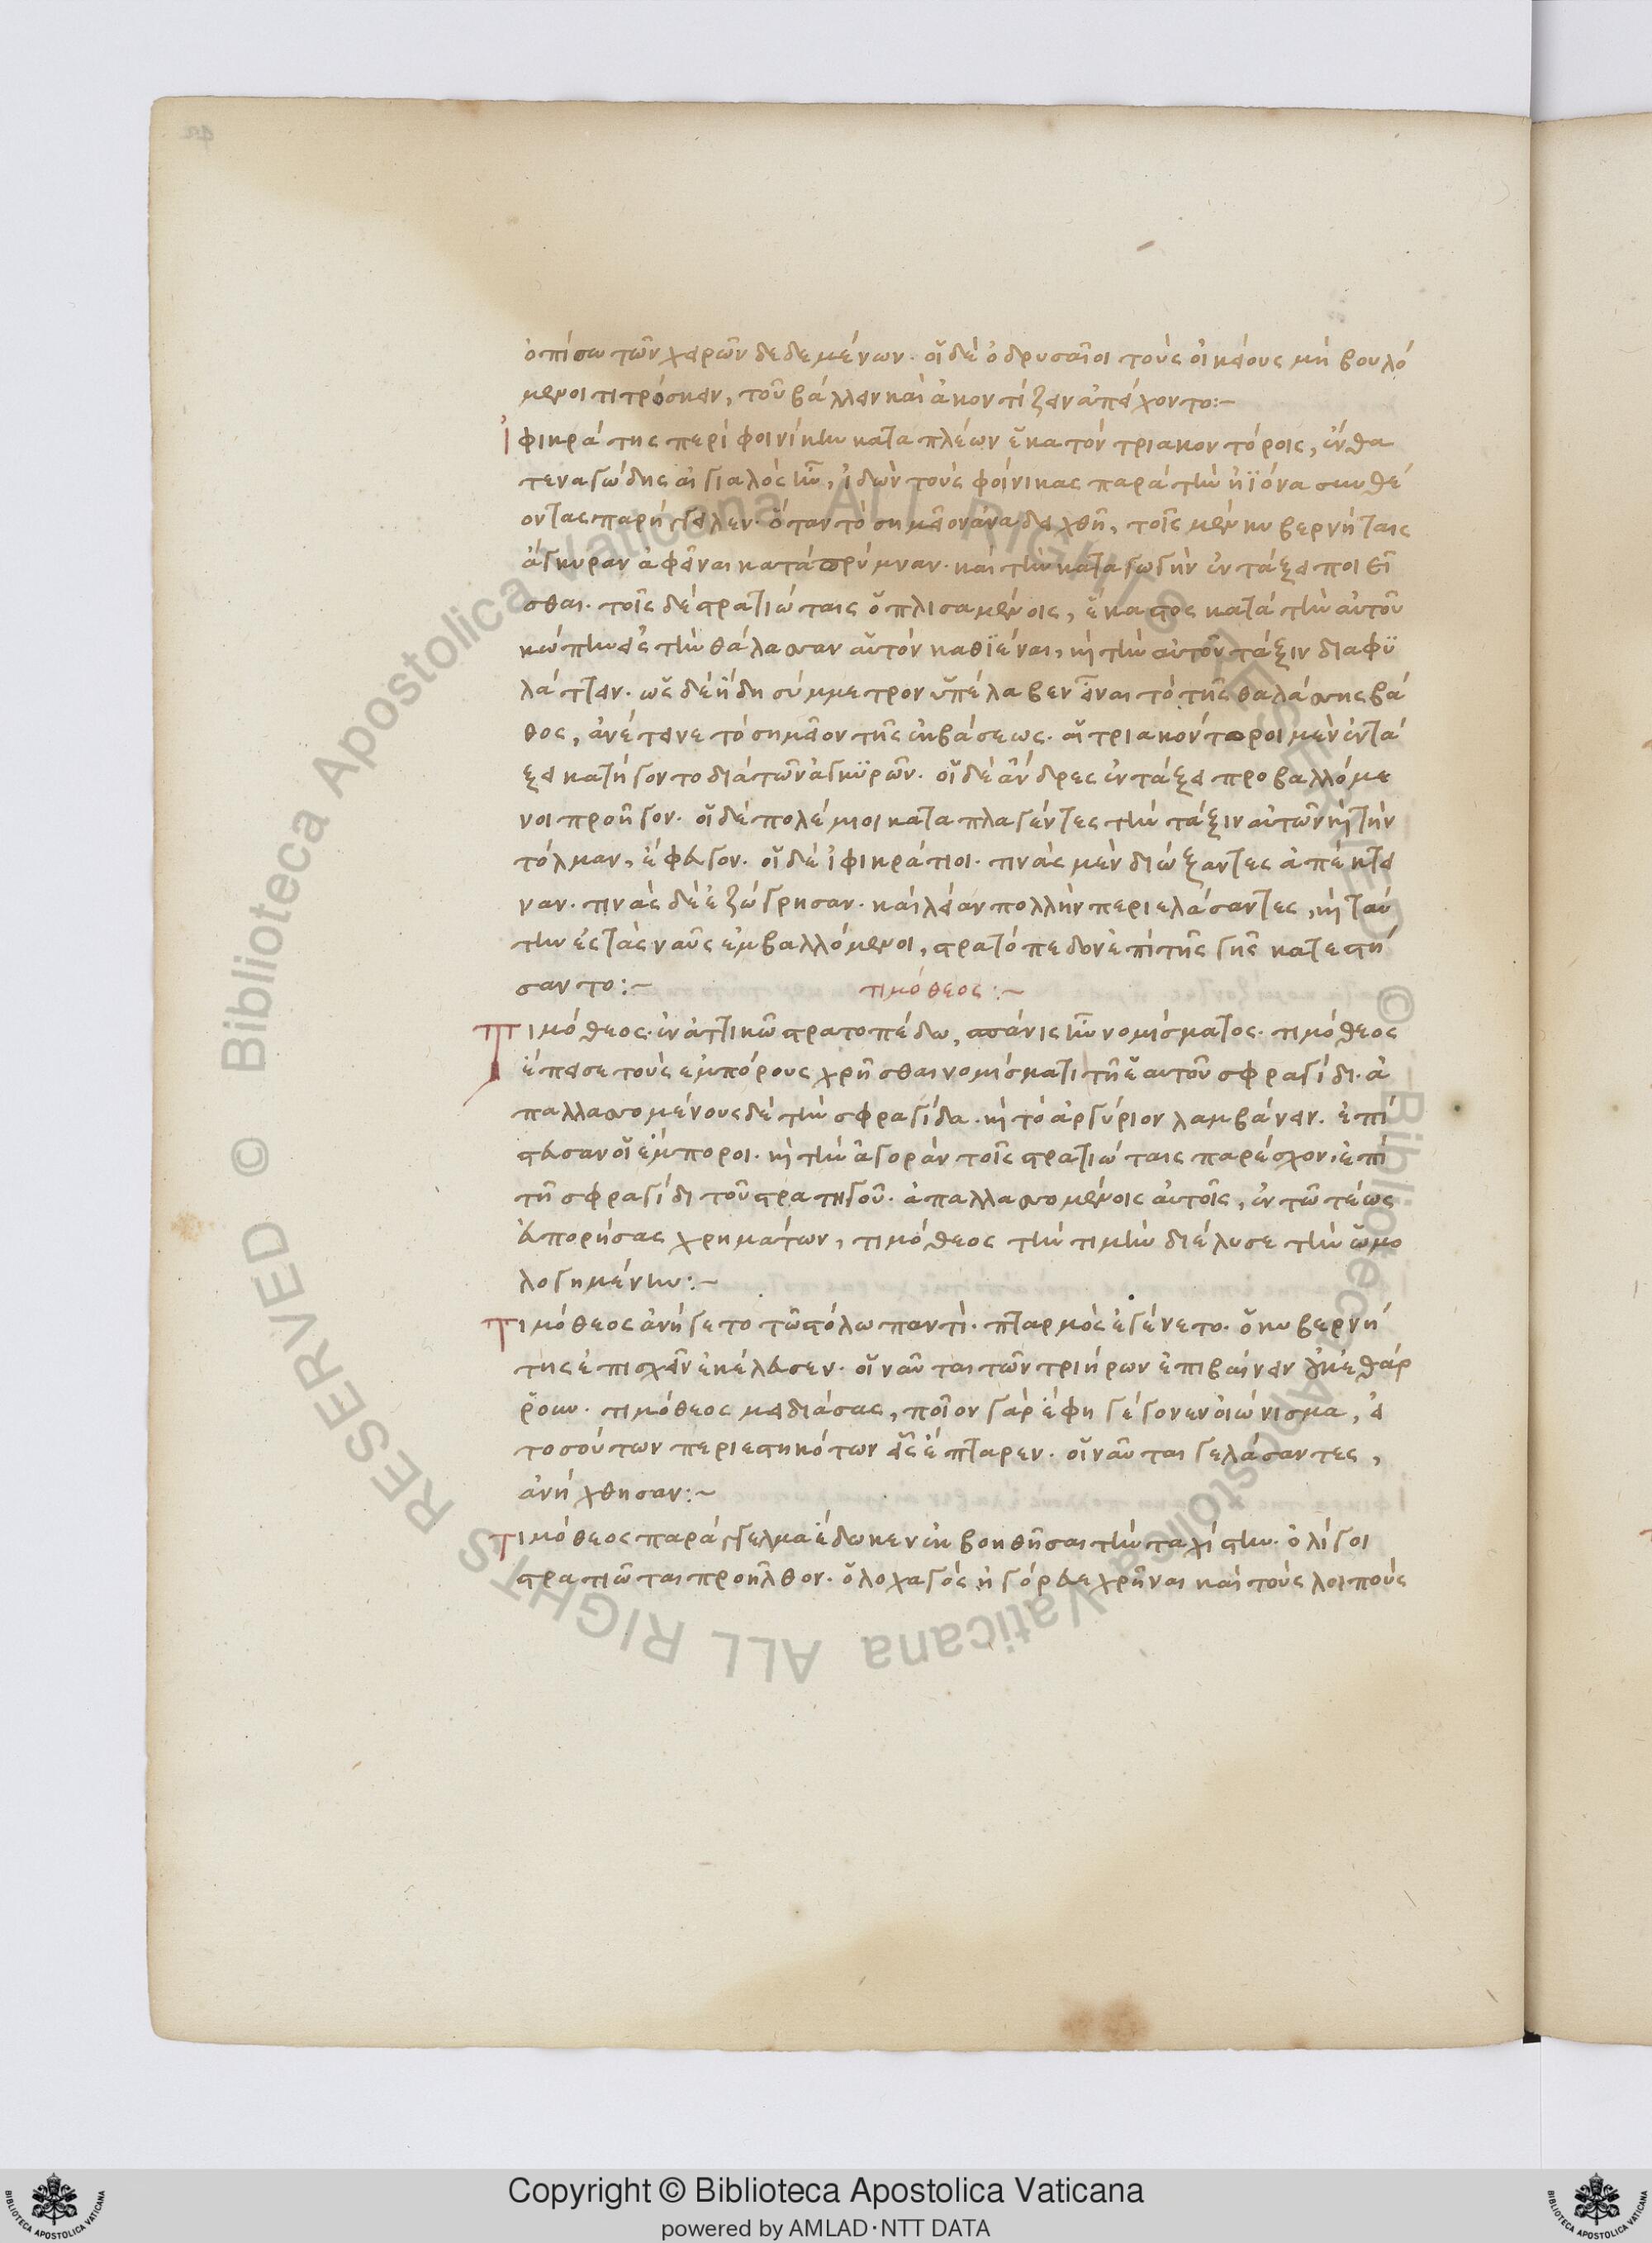 ὀπίσω τῶν χειρῶν δεδεμένων. οἱ δὲ ὀδρυσαῖοι τοὺς οἰκείους μὴ βουλό
μενοι τιτρώσκειν, τοῦ βάλλειν καὶ ἀκοντίζειν ἀπείχοντο:~
Ἰφικράτης περὶ φοινίκην καταπλέων ἑκατὸν τριακοντόροις, ἔνθα
τεναγώδης αἰγιαλὸς ἦν, ἰδὼν τοὺς φοίνικας παρὰ τὴν ἠϊόνα συνθέ
οντας παρήγγειλεν. ὅταν τὸ σημεῖον ἀναδειχθῆ, τοῖς μὲν κυβερνήταις
ἄγκυραν ἀφεῖναι κατὰ πρύμναν. καὶ τὴν καταγωγὴν ἐν τάξει ποιεῖ
σθαι. τοῖς δὲ στρατιώταις ὁπλισαμένοις, ἕκαστος κατὰ τὴν αὐτοῦ
κώπην εἰς τὴν θάλασσαν αὑτὸν καθϊέναι, καὶ τὴν αὐτοῦ τάξιν διαφϋ
λάττειν. ὡς δὲ ἤδη σύμμετρον ὑπέλαβεν εἶναι τὸ τῆς θαλάσσης βά
θος, ἀνέτεινε τὸ σημεῖον τῆς ἐκβάσεως. αἱ τριακόντοροι μὲν ἐν τά
ξει κατήγοντο διὰ τῶν ἀγκϋρῶν. οἱ δὲ ἄνδρες ἐν τάξει προβαλλόμε
νοι προῆγον. οἱ δὲ πολέμιοι καταπλαγέντες τὴν τάξιν αὐτῶν καὶ τὴν
τόλμαν, ἔφευγον. οἱ δὲ ἰφικράτιοι. τινὰς μὲν διώξαντες ἀπέκτει
ναν. τινὰς δὲ ἐζώγρησαν. καὶ λείαν πολλὴν περιελάσαντες, καὶ ταύ
την ἐς τὰς ναῦς ἐμβαλλόμενοι, στρατόπεδον ἐπὶ τῆς γῆς κατεστή
σαντο:~ τιμόθεος:~
Τιμόθεος. ἐν ἀττικῶ στρατοπέδω, σπάνις ἦν νομίσματος. τιμόθεος
ἔπεισε τοὺς ἐμπόρους χρῆσθαι νομίσματι τῆ ἑαυτοῦ σφραγίδι. ἀ
παλλασσομένους δὲ τὴν σφραγίδα. καὶ τὸ ἀργύριον λαμβάνειν. ἐπί
στευσαν οἱ ἔμποροι. καὶ τὴν ἀγορὰν τοῖς στρατιώταις παρέσχον ἐπὶ
τῆ σφραγίδι τοῦ στρατηγοῦ. ἀπαλλασσομένοις αὐτοῖς, ἐν τῶ τέως
εὐπορήσας χρημάτων, τιμόθεος τὴν τιμὴν διέλυσε τὴν ὡμο
λογημένην:~
Τιμόθεος ἀνήγετο τῶ στόλω παντί. πταρμὸς ἐγένετο. ὁ κυβερνή
της ἐπισχεῖν ἐκέλευσεν. οἱ ναῦται τῶν τριήρων ἐπιβαίνειν οὐκ ἐθάρ
ρουν. τιμόθεος μειδιάσας, ποῖον γὰρ ἔφη γέγονεν οἰώνισμα, εἰ
τοσούτων περιεστηκότων εἷς ἔπταρεν. οἱ ναῦται γελάσαντες,
ἀνήχθησαν:~
Τιμόθεος παράγγελμα ἔδωκεν ἐκβοηθῆσαι τὴν ταχίστην. ὀλίγοι
στρατιῶται προῆλθον. ὁ λοχαγὸς ἠγόρευε χρῆναι καὶ τοὺς λοιποὺς
© Biblioteca Apostolica Vaticana ALL RIGHTS RESERVED
© Biblioteca Apostolica Vaticana ALL RIGHTS RESERVED
Copyright © Biblioteca Apostolica Vaticana
powered by AMLAD·NTT DATA
BIBLIOTECA APOSTOLICA VATICANA
BIBLIOTECA APOSTOLICA VATICANA